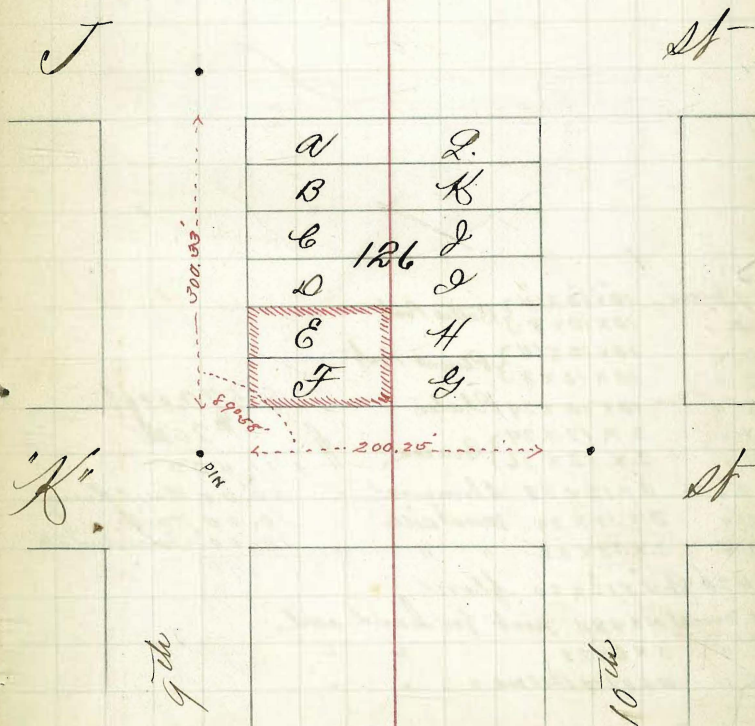 J St
A L.
B K
C J
126
D I
E H
F G
300.33'
89°58'
200.25'
"K" St
PIN
9th
10th